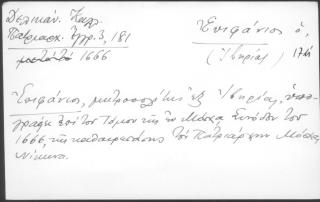 Δελικάν. Καλλ.
Πατριαρχ. Ἔγγρ. 3, 181
1666
Ἐπιφάνιος ὁ,
(Ἰβηρίας) 17αι
Ἐπιφάνιος, μητροπολίτης Ἰβηρίας, ὑπο-
γράφει ἐπὶ τοῦ Τόμου τῆς ἐν Μόσχᾳ Συνόδου τοῦ
1666, τῆς καθαιρεσάσης τὸν Πατριάρχην Μόσχας
Νίκωνα.